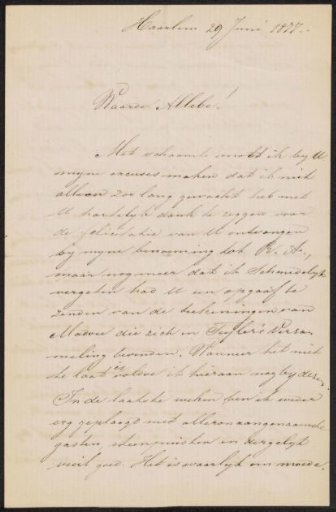 Haarlem 29 Juni 1877.
Waarde Allebé!
Met schaamte moet ik bij U
mijne excuses maken dat ik niet
alleen zoo lang gewacht heb met
U hartelijk dank te zeggen voor
de felicitatie van U ontvangen
bij mijne benoeming tot R. A.,
maar nog meer dat ik schandelijk
vergeten had U een opgaaf te
zenden van de teekeningen van
Mauve die zich in Teyler's Verza
meling bevinden. Wanneer het niet
te laat is voldoe ik hieraan nog bij deze.
In de laatste weken ben ik weder
erg geplaagd met alleronaangenaamste
gasten, steenpuisten en dergelijk
vuil goed. Het is waarlijk om moede